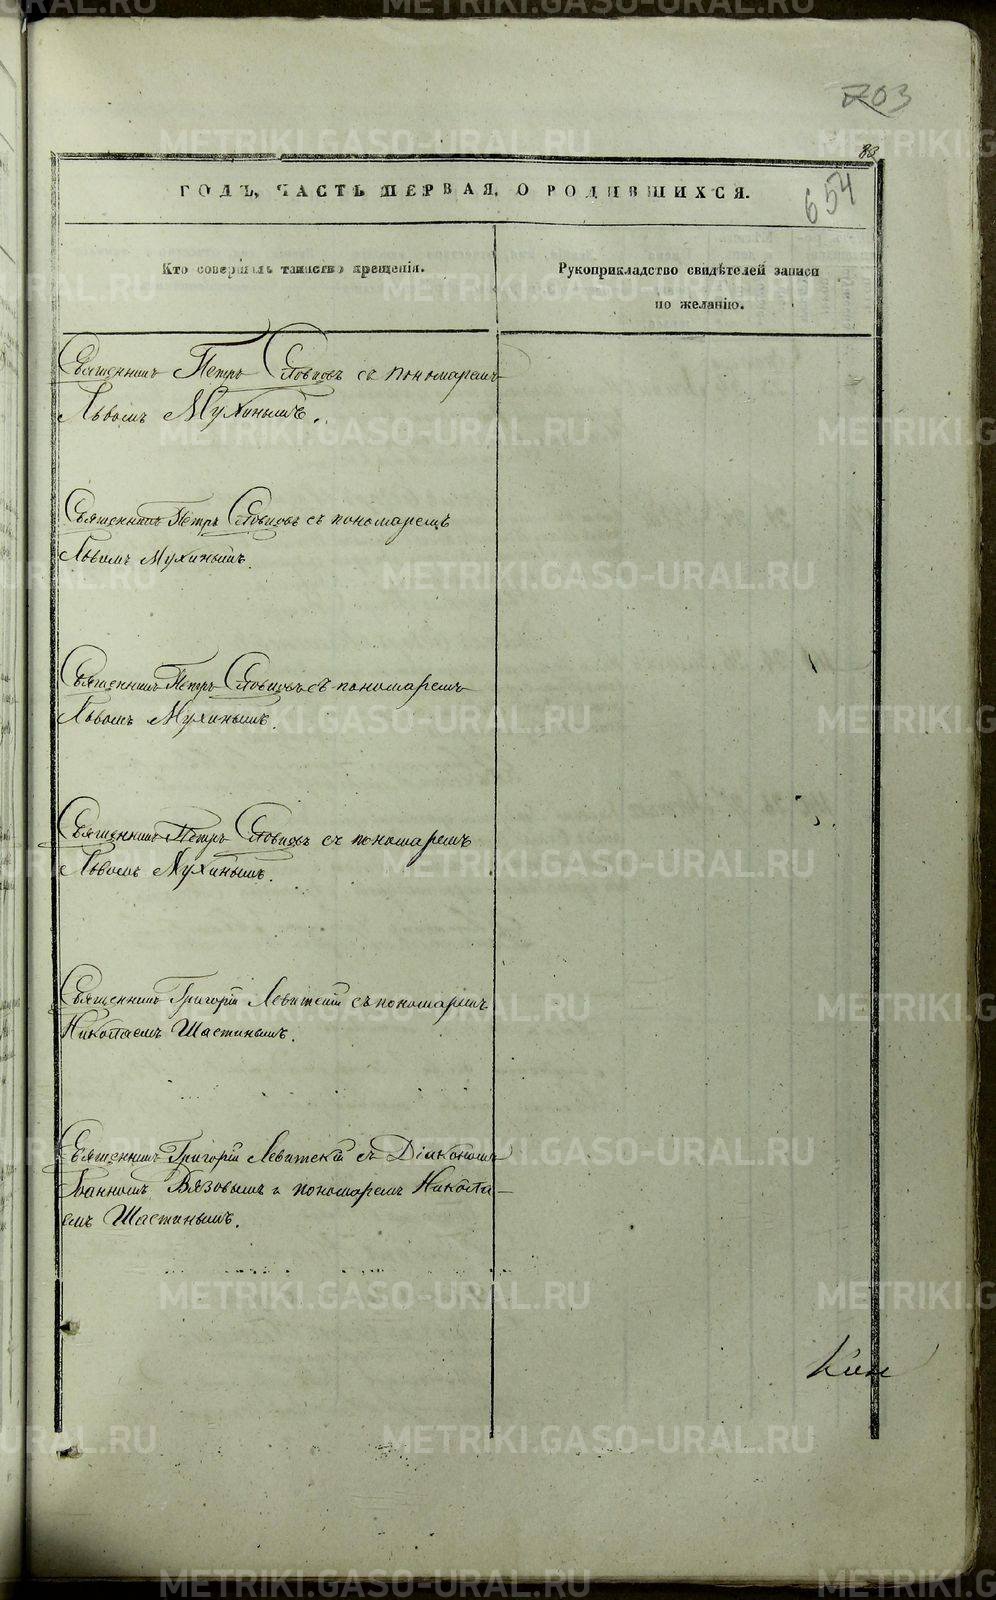 703
83
ГОДЪ, ЧАСТЬ ПЕРВАЯ, О РОДИВШИХСЯ.
654
Кто совершалъ таинство крещенія.
Рукоприкладство свидѣтелей записи
по желанію.
Священникъ Петръ Словцовъ съ пономаремъ
Львомъ Мухинымъ.
Священникъ Петръ Словцовъ съ пономаремъ
Львомъ Мухинымъ.
Священникъ Петръ Словцовъ съ пономаремъ
Львомъ Мухинымъ.
Священникъ Петръ Словцовъ съ пономаремъ
Львомъ Мухинымъ.
Священникъ Григорій Левитскій съ пономаремъ
Николаемъ Шастинымъ.
Священникъ Григорій Левитскій съ Діакономъ
Іоанномъ Вязовымъ и пономаремъ Никола-
емъ Шастинымъ.
METRIKI.GASO-URAL.RU